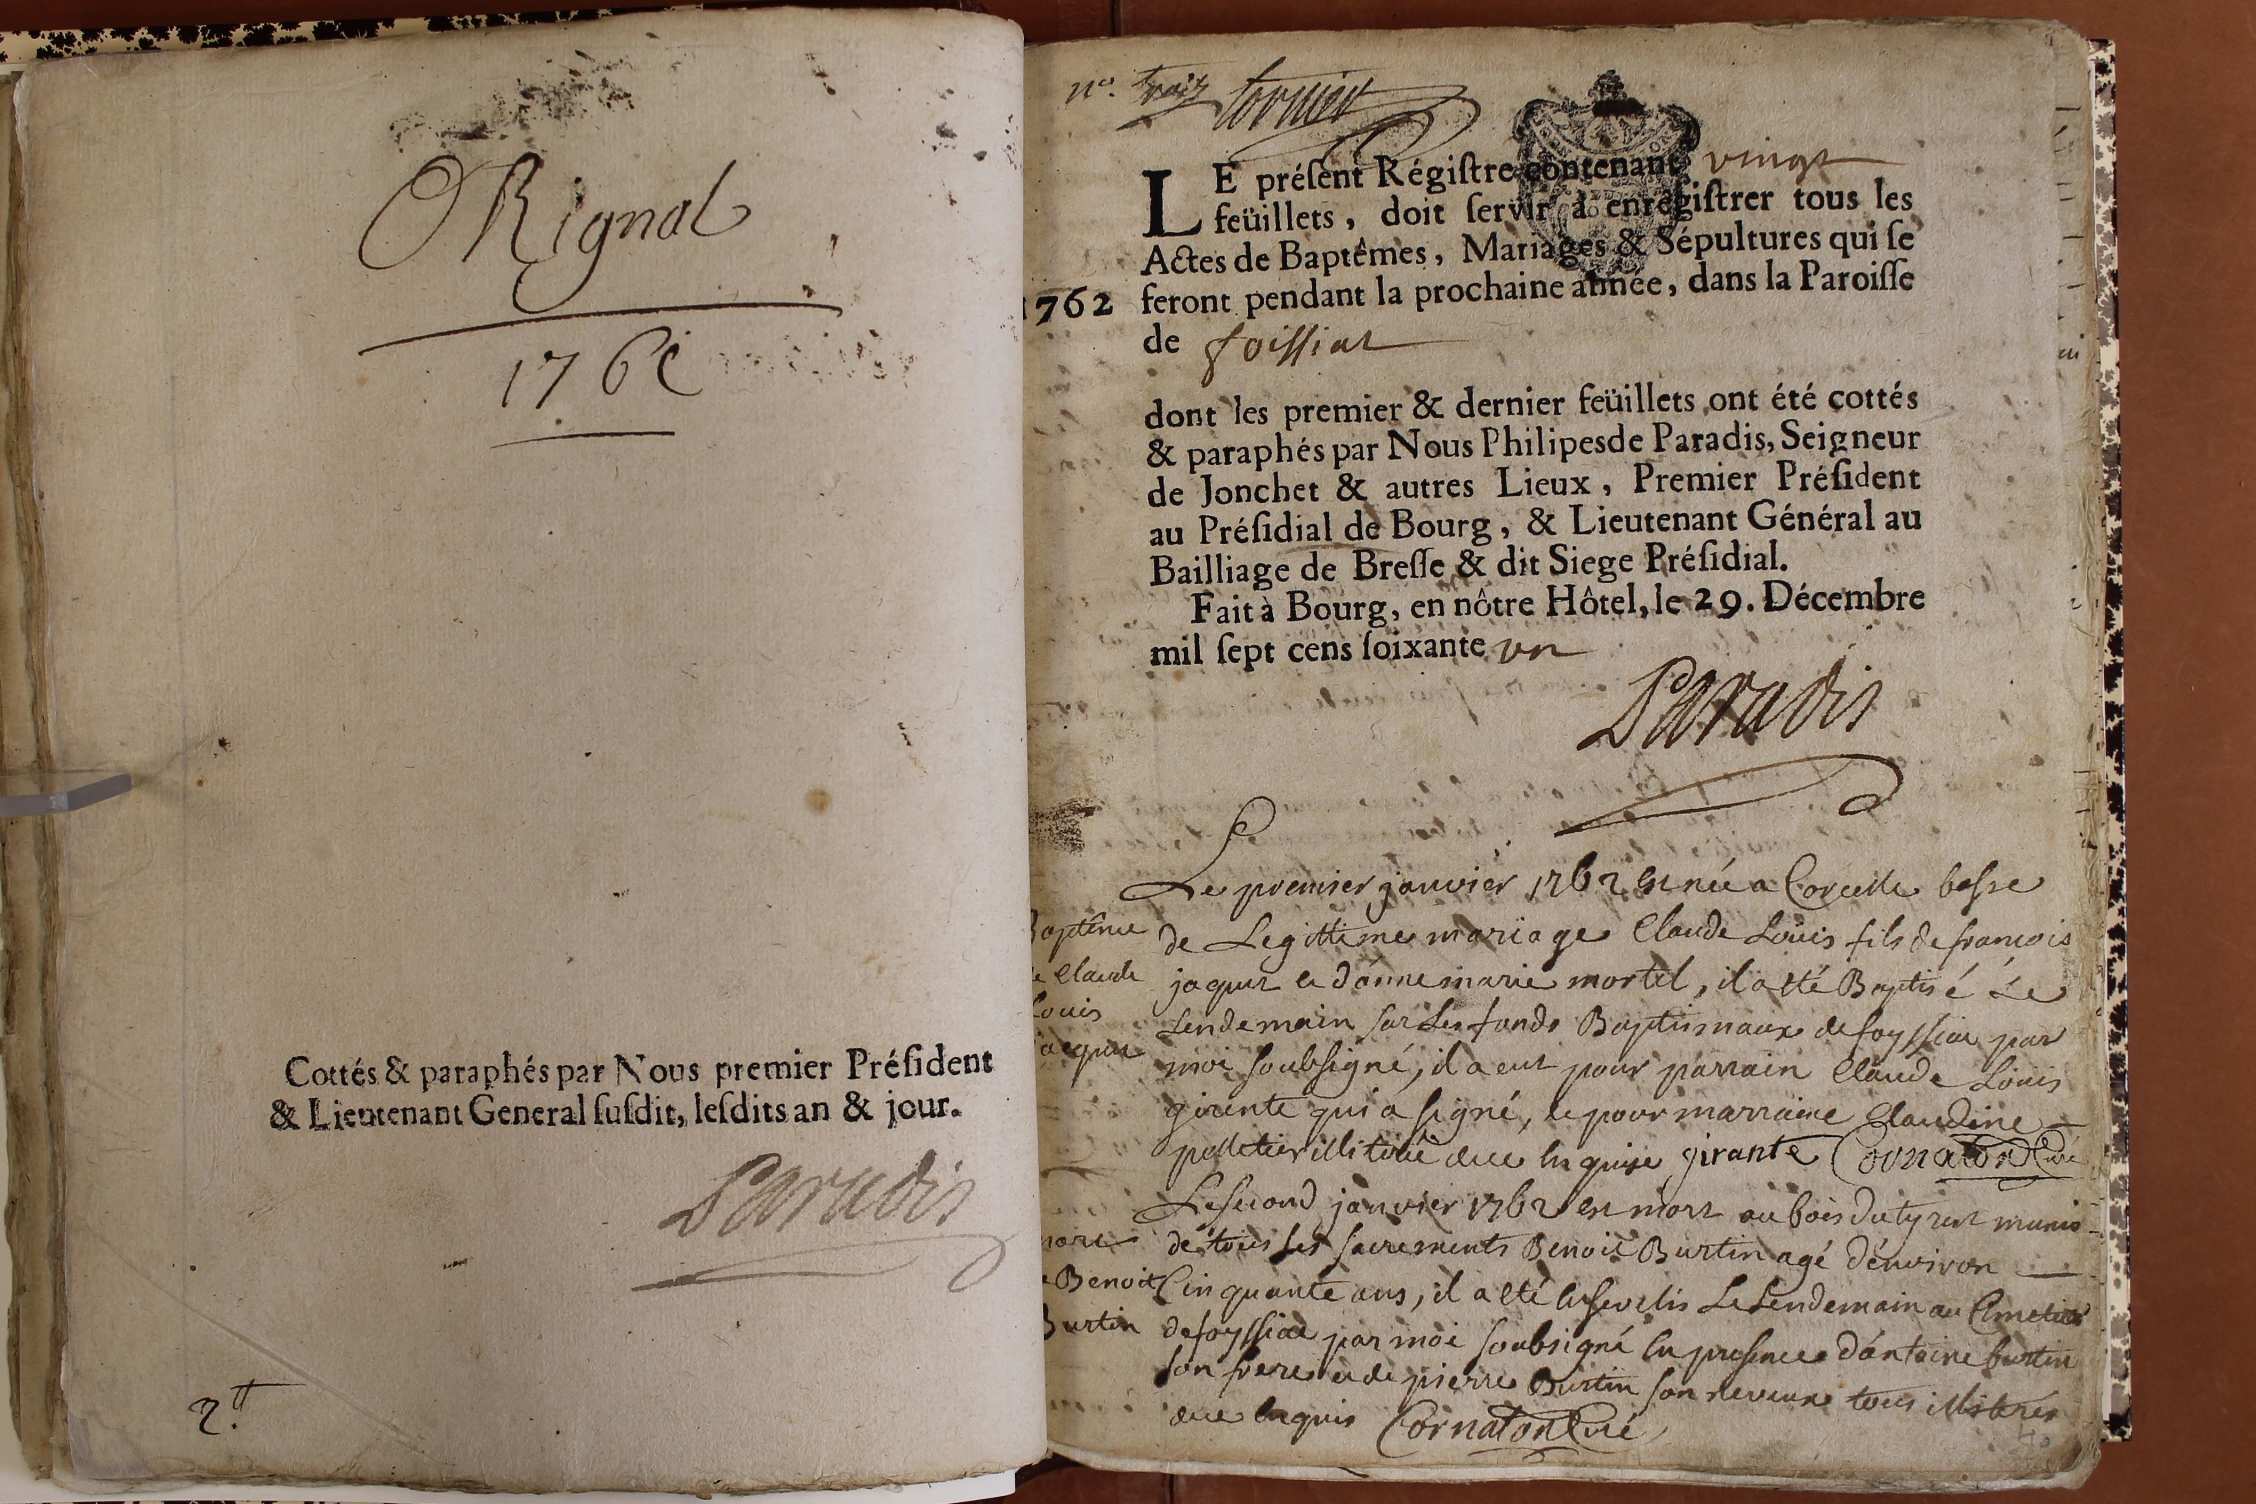 ORignal
176
Cottés & paraphés par Nous premier Préſident
& Lieutenant General ſuſdit, leſdits an & jour.
Paradis
2.tt
n°. trois tornier
LE préſent Régiſtre contenant vingt
feüillets, doit ſervir à enregiſtrer tous les
Actes de Baptêmes, Mariages & Sépultures qui ſe
1762 feront pendant la prochaine année, dans la Paroiſſe
de foissiat
dont les premier & dernier feüillets ont été cottés
& paraphés par Nous Philipes de Paradis, Seigneur
de Jonchet & autres Lieux, Premier Préſident
au Préſidial de Bourg, & Lieutenant Général au
Bailliage de Breſſe & dit Siege Préſidial.
Fait à Bourg, en nôtre Hôtel, le 29. Décembre
mil ſept cens ſoixante un
Paradis
Baptême
de Claude
Louis
jaquet
Le premier janvier 1762 est née a Corcelle basse
de Legittime mariage Claude Louis fils de francois
jaquet et d'anne marie mortel, il a été Baptisé Le
Lendemain sur Les fonds Baptismaux de foyssiat par
moi soubsigné, il a eut pour parrain Claude Louis
girente qui a signé, et pour marraine Claudine
pelletier illiterée avec enquise girante Cornaton Curé
mort
de Benoit
Burtin
Le second janvier 1762 est mort au bois du tyret munis
de tous les sacrements Benoit Burtin agé d'environ
Cinquante ans, il a été ensevelis Le Lendemain au Cimetier
de foyssiat par moi soubsigné en presence d'antoine burtin
son frere et de pierre Burtin son neveux tous illiterés
avec enquis Cornaton Curé